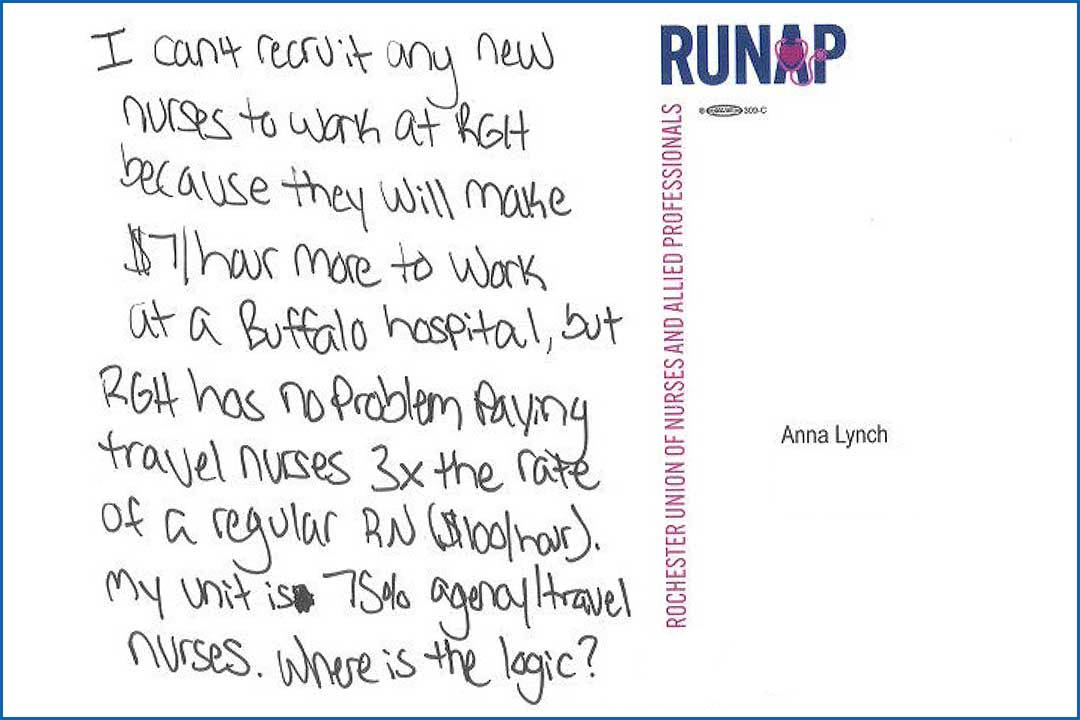 I can't recruit any new
nurses to work at RGH
because they will make
$7/hour more to work
at a Buffalo hospital, but
RGH has no problem paying
travel nurses 3x the rate
of a regular RN ($100/hour).
My unit is 75% agency/travel
nurses. Where is the logic?
RUNAP
309-C
ROCHESTER UNION OF NURSES AND ALLIED PROFESSIONALS
Anna Lynch